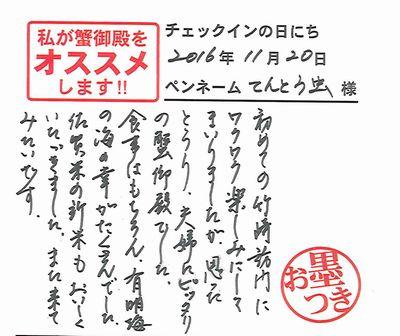 私が蟹御殿を
オススメ
します!!
チェックインの日にち
2016年 11月 20日
ペンネーム てんとう虫 様
初めての竹崎訪問に
ワクワク楽しみにして
まいりましたが、思った
とうり、夫婦にピッタリ
の蟹御殿でした。
食事はもちろん、有明海
の海の幸がたくさんでした。
佐賀米の新米もおいしく
いただきました。また来て
みたいです。
お墨
つき